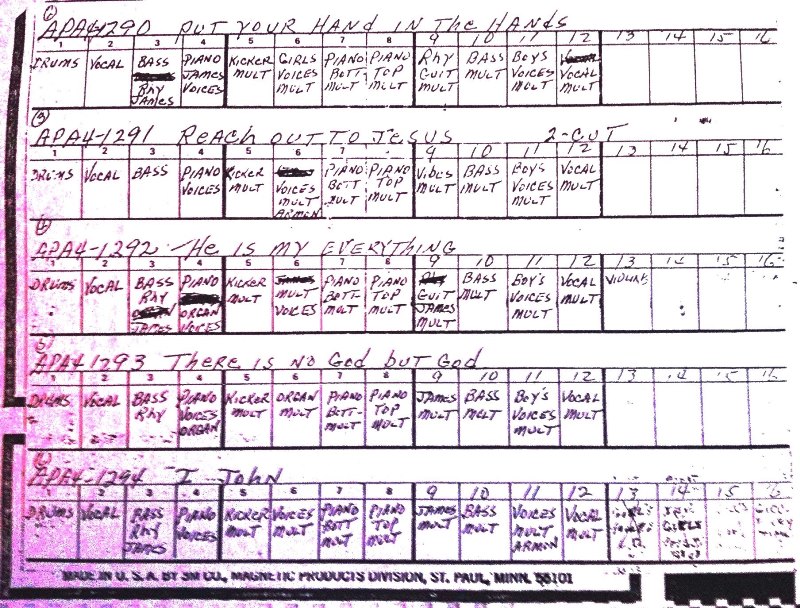 APA4-1290 PUT YOUR HAND IN THE HANDS
1 2 3 4 5 6 7 8 9 10 11 12 13 14 15 16
DRUMS VOCAL BASS PIANO KICKER GIRLS PIANO PIANO RHY BASS BOYS
JAMES MULT VOICES BOTT TOP GUIT MULT VOICES VOCAL
RHY VOICES MULT MULT MULT MULT MULT MULT
JAMES
APA4-1291 REACH OUT TO JESUS 2-CUT
1 2 3 4 5 6 7 8 9 10 11 12 13 14 15 16
DRUMS VOCAL BASS PIANO KICKER PIANO PIANO VIBES BASS BOYS VOCAL
VOICES MULT VOICES BOTT TOP MULT MULT VOICES MULT
MULT MULT MULT MULT
ARMON
APA4-1292 HE IS MY EVERYTHING
1 2 3 4 5 6 7 8 9 10 11 12 13 14 15 16
DRUMS VOCAL BASS PIANO KICKER PIANO PIANO BASS BOY'S VOCAL
RHY MULT MULT BOTT- TOP GUIT MULT VOICES MULT
ORGAN VOICES MULT MULT JAMES MULT
JAMES VOICES MULT
5
APA4-1293 THERE IS NO GOD BUT GOD
1 2 3 4 5 6 7 8 9 10 11 12 13 14 15 16
DRUMS VOCAL BASS PIANO KICKER ORGAN PIANO PIANO JAMES BASS BOY'S VOCAL
RHY VOICES MULT MULT BOTT- TOP MULT MULT VOICES MULT
ORGAN MULT MULT MULT
APA4-1294 I JOHN
1 2 3 4 5 6 7 8 9 10 11 12 13 14 15 16
DRUMS VOCAL BASS PIANO KICKER VOICES PIANO PIANO JAMES BASS VOICES VOCAL
RHY VOICES MULT MULT BOTT TOP MULT MULT MULT MULT GIRLS
JAMES MULT MULT ARMON
MADE IN U. S. A. BY 3M CO., MAGNETIC PRODUCTS DIVISION, ST. PAUL, MINN. 55101